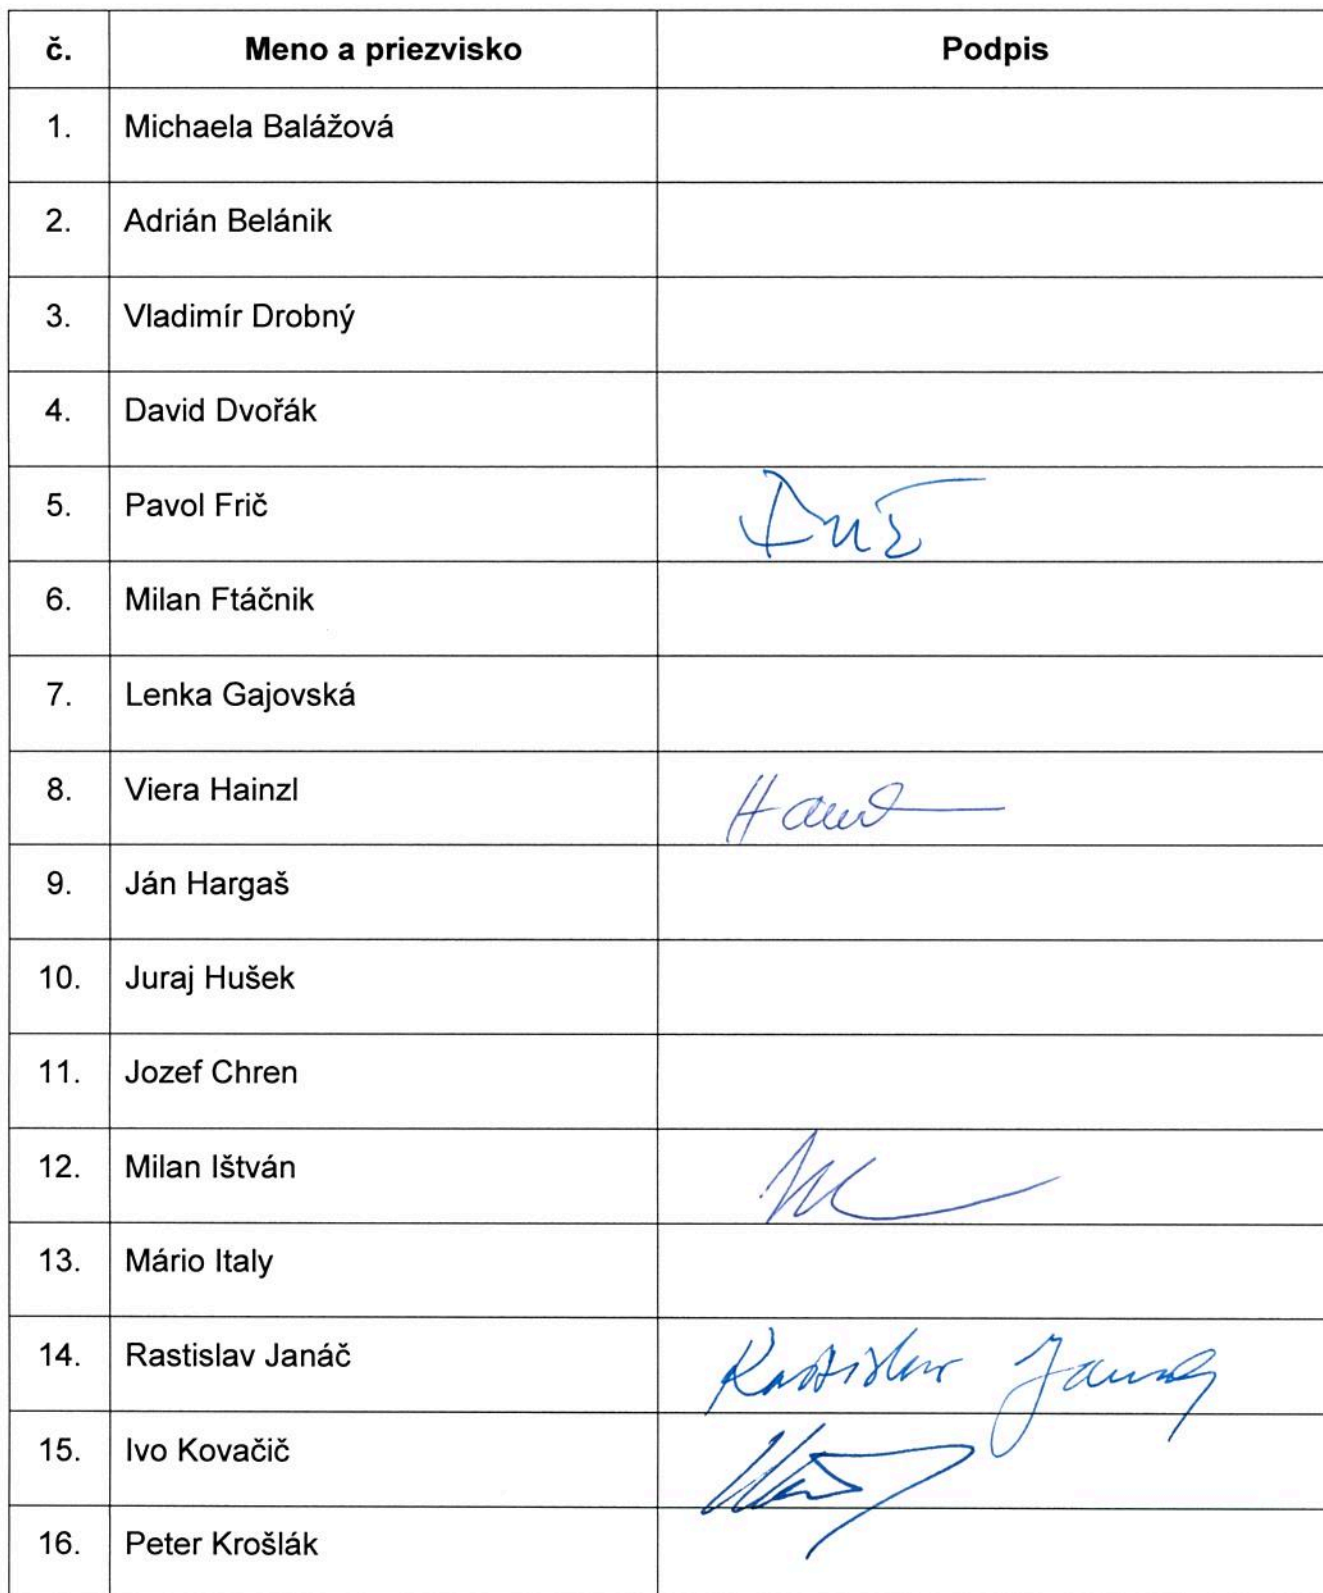 č. Meno a priezvisko Podpis
1. Michaela Balážová
2. Adrián Belánik
3. Vladimír Drobný
4. David Dvořák
5. Pavol Frič
6. Milan Ftáčnik
7. Lenka Gajovská
8. Viera Hainzl
9. Ján Hargaš
10. Juraj Hušek
11. Jozef Chren
12. Milan Ištván
13. Mário Italy
14. Rastislav Janáč Rastislav Janáč
15. Ivo Kovačič
16. Peter Krošlák